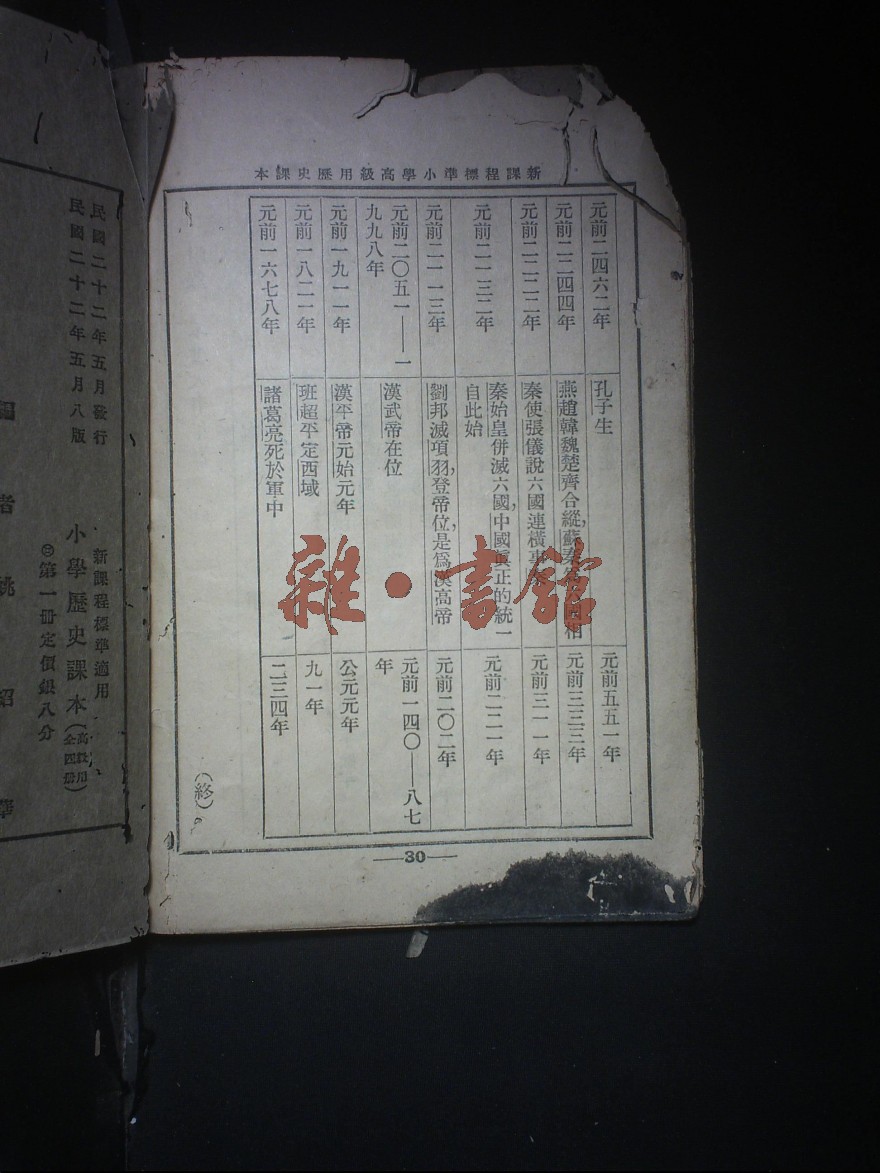 新課程標準小學高級用歷史課本
元前二四六二年
孔子生
元前五五一年
元前二二四四年
燕趙韓魏楚齊合縱,蘇秦爲六國相
元前三三三年
元前二二二二年
秦使張儀說六國連橫事秦
元前三一一年
元前二一三二年
秦始皇併滅六國,中國眞正的統一
自此始
元前二二一年
元前二一一三年
劉邦滅項羽,登帝位,是爲漢高帝
元前二〇二年
元前二〇五一——一
九九八年
漢武帝在位
元前一四〇——八七
年
元前一九一一年
漢平帝元始元年
公元元年
元前一八二一年
班超平定西域
九一年
元前一六七八年
諸葛亮死於軍中
二三四年
(終)
—30—
雜·書館
民國二十二年五月發行
民國二十二年五月八版
新課程標準適用
小學歷史課本(高級用全四冊)
第一冊定價銀八分
編者 姚紹華